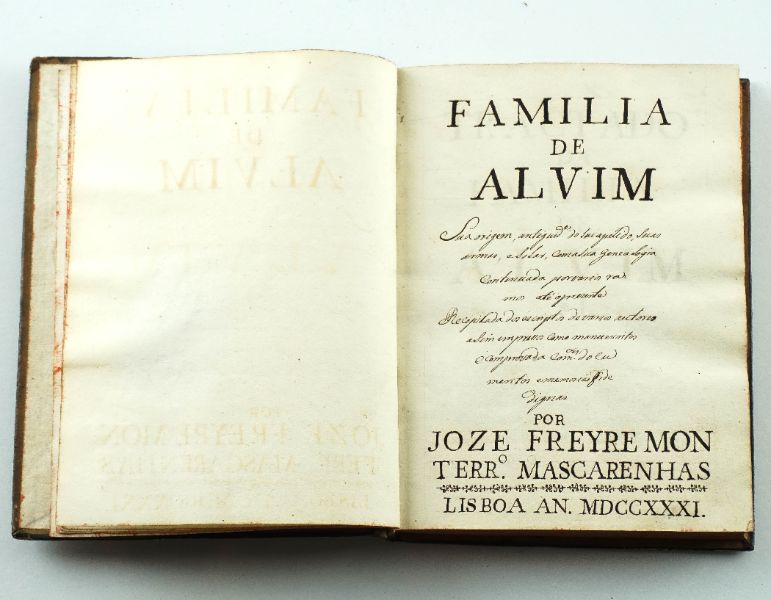 FAMILIA
DE
ALVIM
Sua origem, anteguid.e do seu apelido, suas
armas, e Solar, com a sua Genealogia
Continuada por varios ra
mos até o prezente
Recopilada dos escriptos de varios autores
assim impressos como manuscritos
e comprovada com m.tos docu
mentos e memorias fide
dignas
POR
JOZE FREYRE MON
TERR.O MASCARENHAS
LISBOA AN. MDCCXXXI.